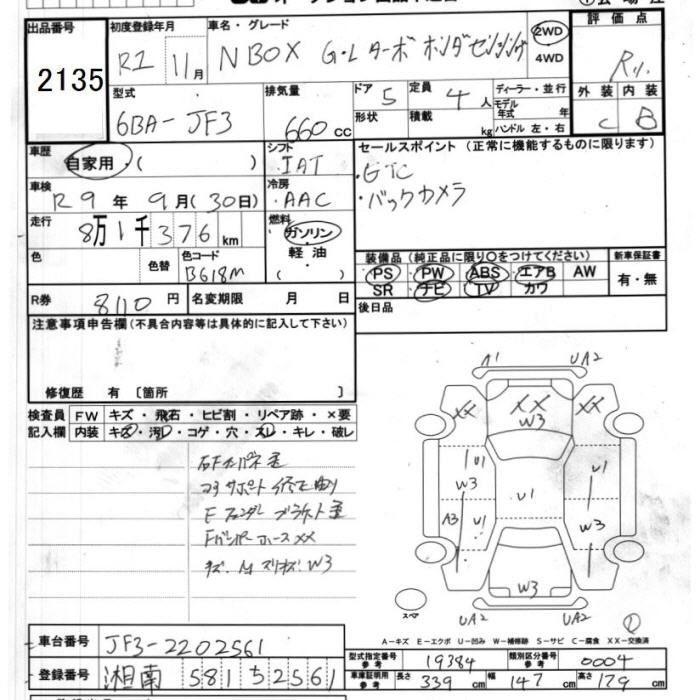 出品番号 2135
初度登録年月 R1 11月
車名・グレード NBOX G・Lターボ ホンダセンシング
2WD
4WD
評価点 R
外装 内装
C B
型式 6BA-JF3
排気量 660 cc
ドア 5
形状
定員 4人
積載 kg
ディーラー・並行
モデル年式 年
ハンドル 左・右
車歴 自家用・( )
シフト IAT
セールスポイント (正常に機能するものに限ります)
・ETC
・バックカメラ
車検 R9年9月(30日)
冷房 AAC
走行 8万1千376km
燃料 ガソリン・軽油・( )
色 色替 色コード B618M
装備品 (純正品に限り○をつけてください)
新車保証書
PS PW ABS エアB AW
SR ナビ TV カワ
有・無
R券 8110円
名変期限 月 日
後日品
注意事項申告欄 (不具合内容等は具体的に記入して下さい)
修復歴 有 〔箇所 〕
検査員記入欄
FW キズ・飛石・ヒビ割・リペア跡・×要
内装 キズ・汚レ・コゲ・穴・スレ・キレ・破レ
コアサポート
Fフェンダーブラケット
Fバンパーホース XX
W3
A1 UA2
XX XX XX
W3
U1 U1
W3 U1
A3 U1 W3
W3
UA2 UA2
スペア
A-キズ E-エクボ U-凹み W-補修跡 S-サビ C-腐食 XX-交換済
車台番号 JF3-2202561
登録番号 湘南 581 ち 2561
型式指定番号 参考 19384
類別区分番号 参考 0004
車庫証明用 参考 長さ 339cm 幅 147cm 高さ 179cm